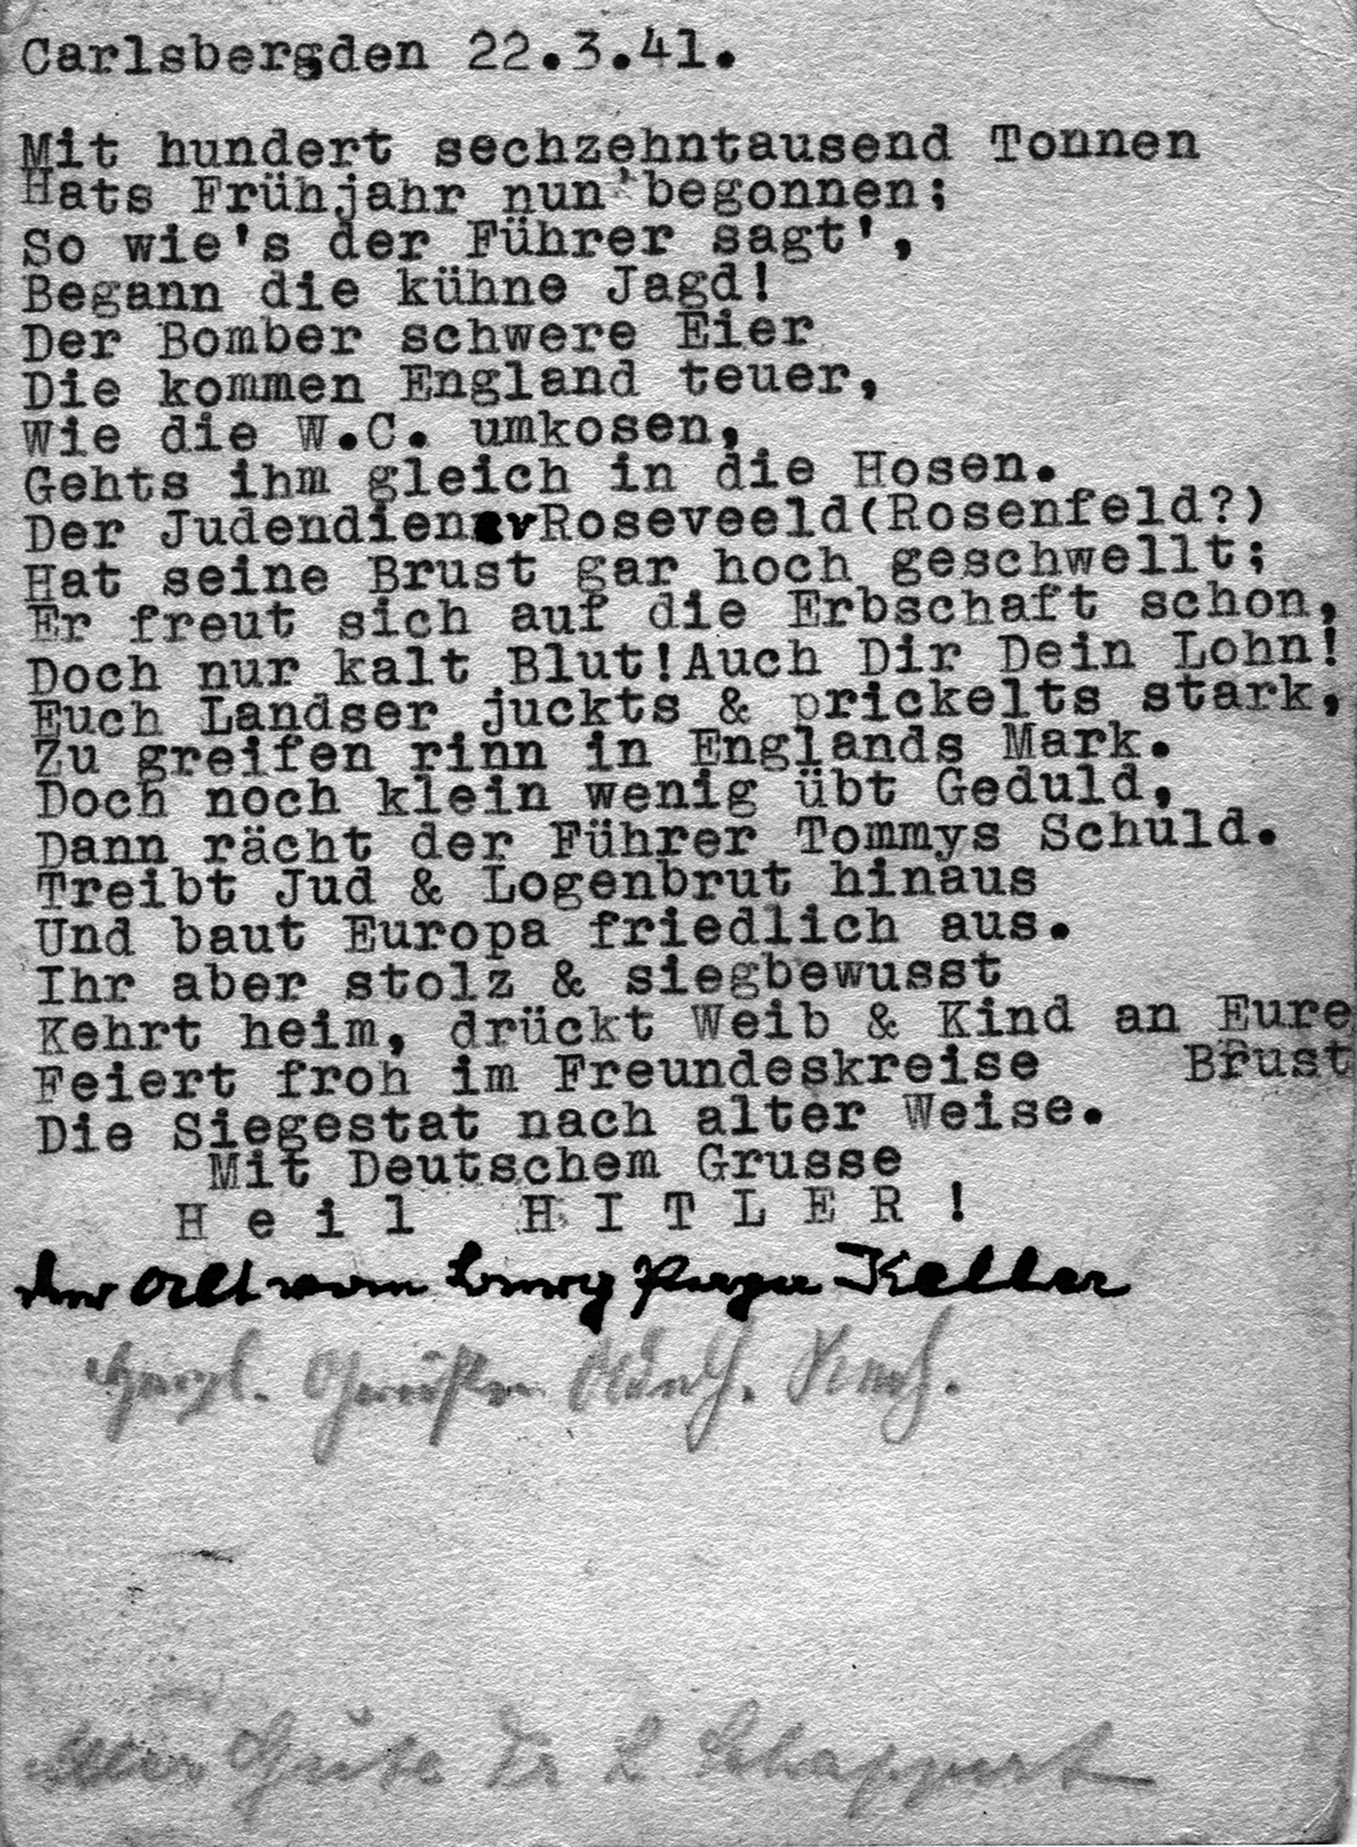 Carlsberg,den 22.3.41.
Mit hundert sechzehntausend Tonnen
Hats Frühjahr nun begonnen;
So wie's der Führer sagt',
Begann die kühne Jagd!
Der Bomber schwere Eier
Die kommen England teuer,
Wie die W.C. umkosen,
Gehts ihm gleich in die Hosen.
Der Judendiener Roseveeld(Rosenfeld?)
Hat seine Brust gar hoch geschwellt;
Er freut sich auf die Erbschaft schon,
Doch nur kalt Blut!Auch Dir Dein Lohn!
Euch Landser juckts & prickelts stark,
Zu greifen rinn in Englands Mark.
Doch noch klein wenig übt Geduld,
Dann rächt der Führer Tommys Schuld.
Treibt Jud & Logenbrut hinaus
Und baut Europa friedlich aus.
Ihr aber stolz & siegbewusst
Kehrt heim, drückt Weib & Kind an Eure
Feiert froh im Freundeskreise Brust
Die Siegestat nach alter Weise.
Mit Deutschem Grusse
H e i l H I T L E R !
Keller
Herzl. Grüße
Dr L Schappert